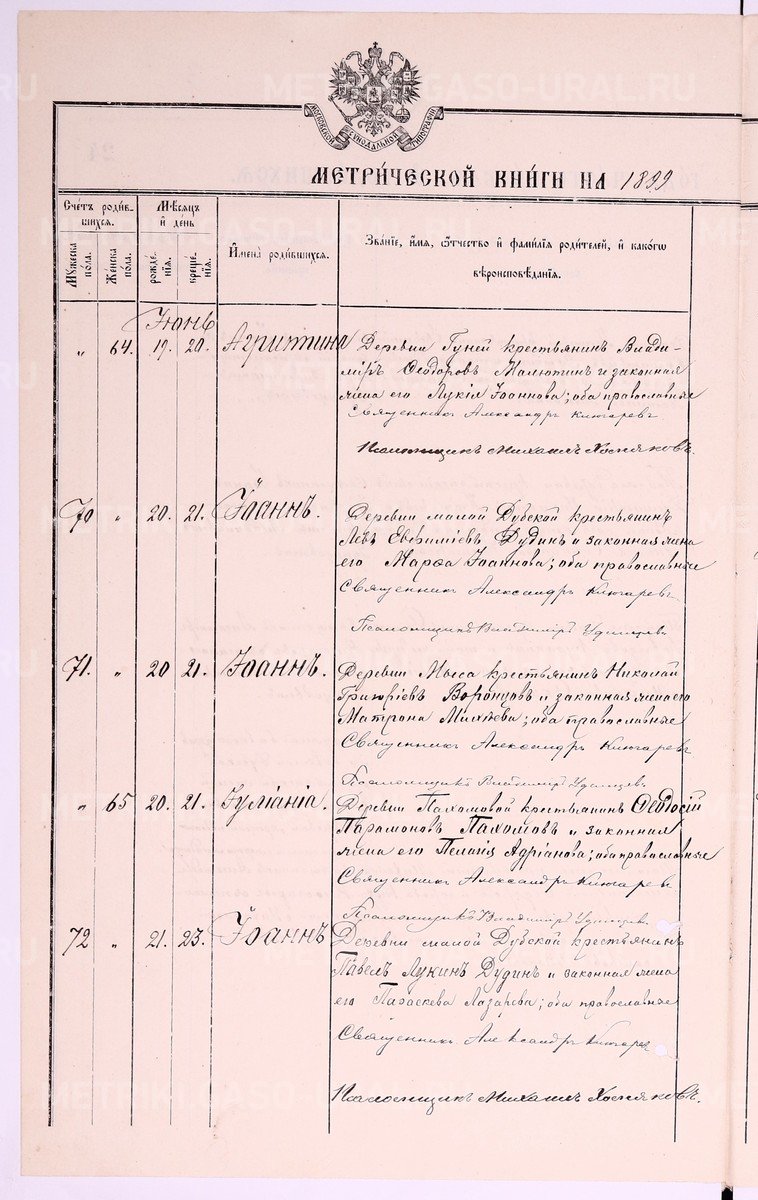 METRIKI.GASO-URAL.RU
МОСКОВСКОЙ СѴНОДАЛЬНОЙ ТИПОГРАФІИ
МЕТРИ́ЧЕСКОЙ КНИ́ГИ НА 1899
Сче́тъ роди́в-
шихся.
Мѣ́сяцъ
и҆ де́нь
Имена̀ роди́вшихся.
Зва́нїе, и҆́мѧ, ѻ҆́тчество и҆ фамилїѧ роди́телей, и҆ како́гѡ
вѣроисповѣ́данїѧ.
Мꙋ́жеска
по́ла.
Же́нска
по́ла.
рожде́-
нїѧ.
креще́-
нїѧ.
Іюнь
„ 64. 19. 20. Агриппина
Деревни Гуней крестьянинъ Влади-
міръ Ѳеодоровъ Малютинъ и законная
жена его Лукія Іоаннова; оба православные
Священникъ Александръ Ключаревъ
Псаломщикъ Михаилъ Хосняковъ.
70 „ 20. 21. Іоаннъ.
Деревни малой Дубской крестьянинъ
Левъ Евѳиміевъ Дудинъ и законная жена
его Марѳа Іоаннова; оба православные
Священникъ Александръ Ключаревъ
Псаломщикъ Владиміръ Удинцевъ
71. „ 20 21. Іоаннъ.
Деревни Мыса крестьянинъ Николай
Григоріевъ Воронцовъ и законная жена его
Матрона Михѣева; оба православные
Священникъ Александръ Ключаревъ
Псаломщикъ Владиміръ Удинцевъ
„ 65 20. 21. Іуліанія.
Деревни Пахомовой крестьянинъ Ѳеодосій
Парамоновъ Пахомовъ и законная
жена его Пелагія Адріанова; оба православные
Священникъ Александръ Ключаревъ
Псаломщикъ Владиміръ Удинцевъ
72 „ 21. 23. Іоаннъ
Деревни малой Дубской крестьянинъ
Павелъ Лукинъ Дудинъ и законная жена
его Параскева Лазарева; оба православные
Священникъ Александръ Ключаревъ
Псаломщикъ Михаилъ Хосняковъ.